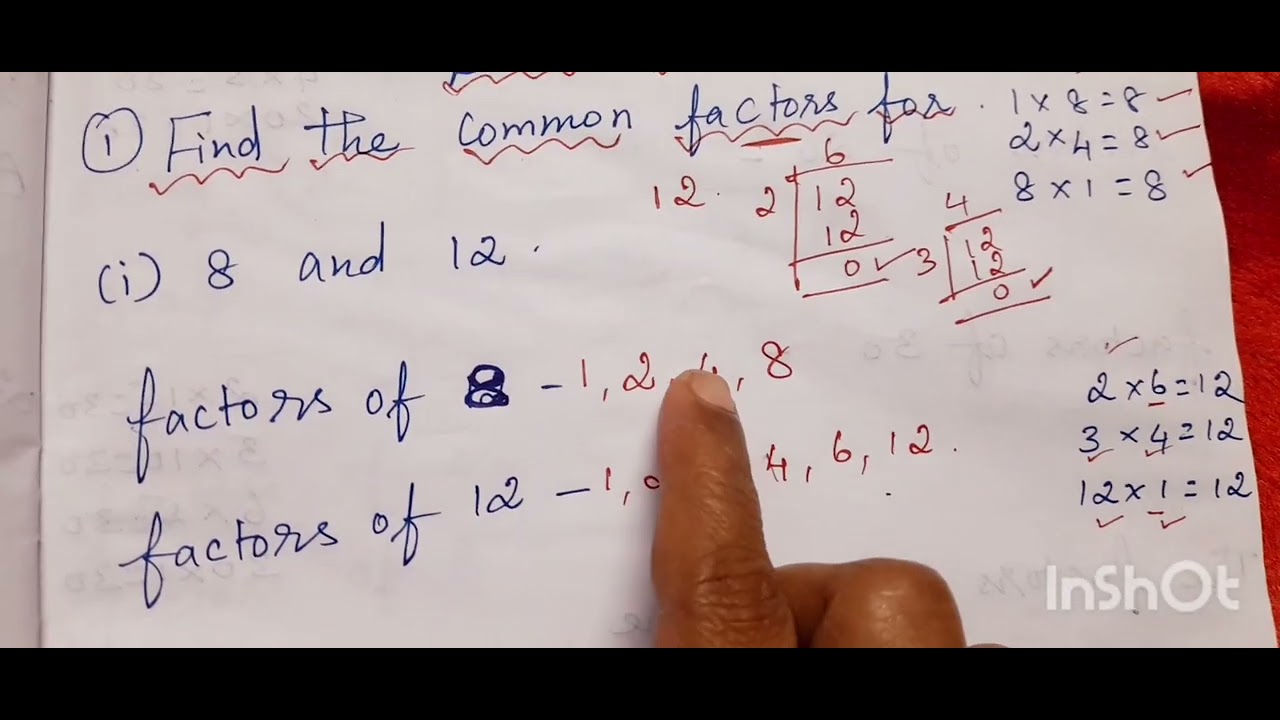 ① Find the common factors for
(i) 8 and 12.
12.
6
2 12
12
0
4
3 12
12
0
1 × 8 = 8
2 × 4 = 8
8 × 1 = 8
factors of 8 - 1, 2, 4, 8
factors of 12 - 1, 4, 6, 12.
2 × 6 = 12
3 × 4 = 12
12 × 1 = 12
InShOt